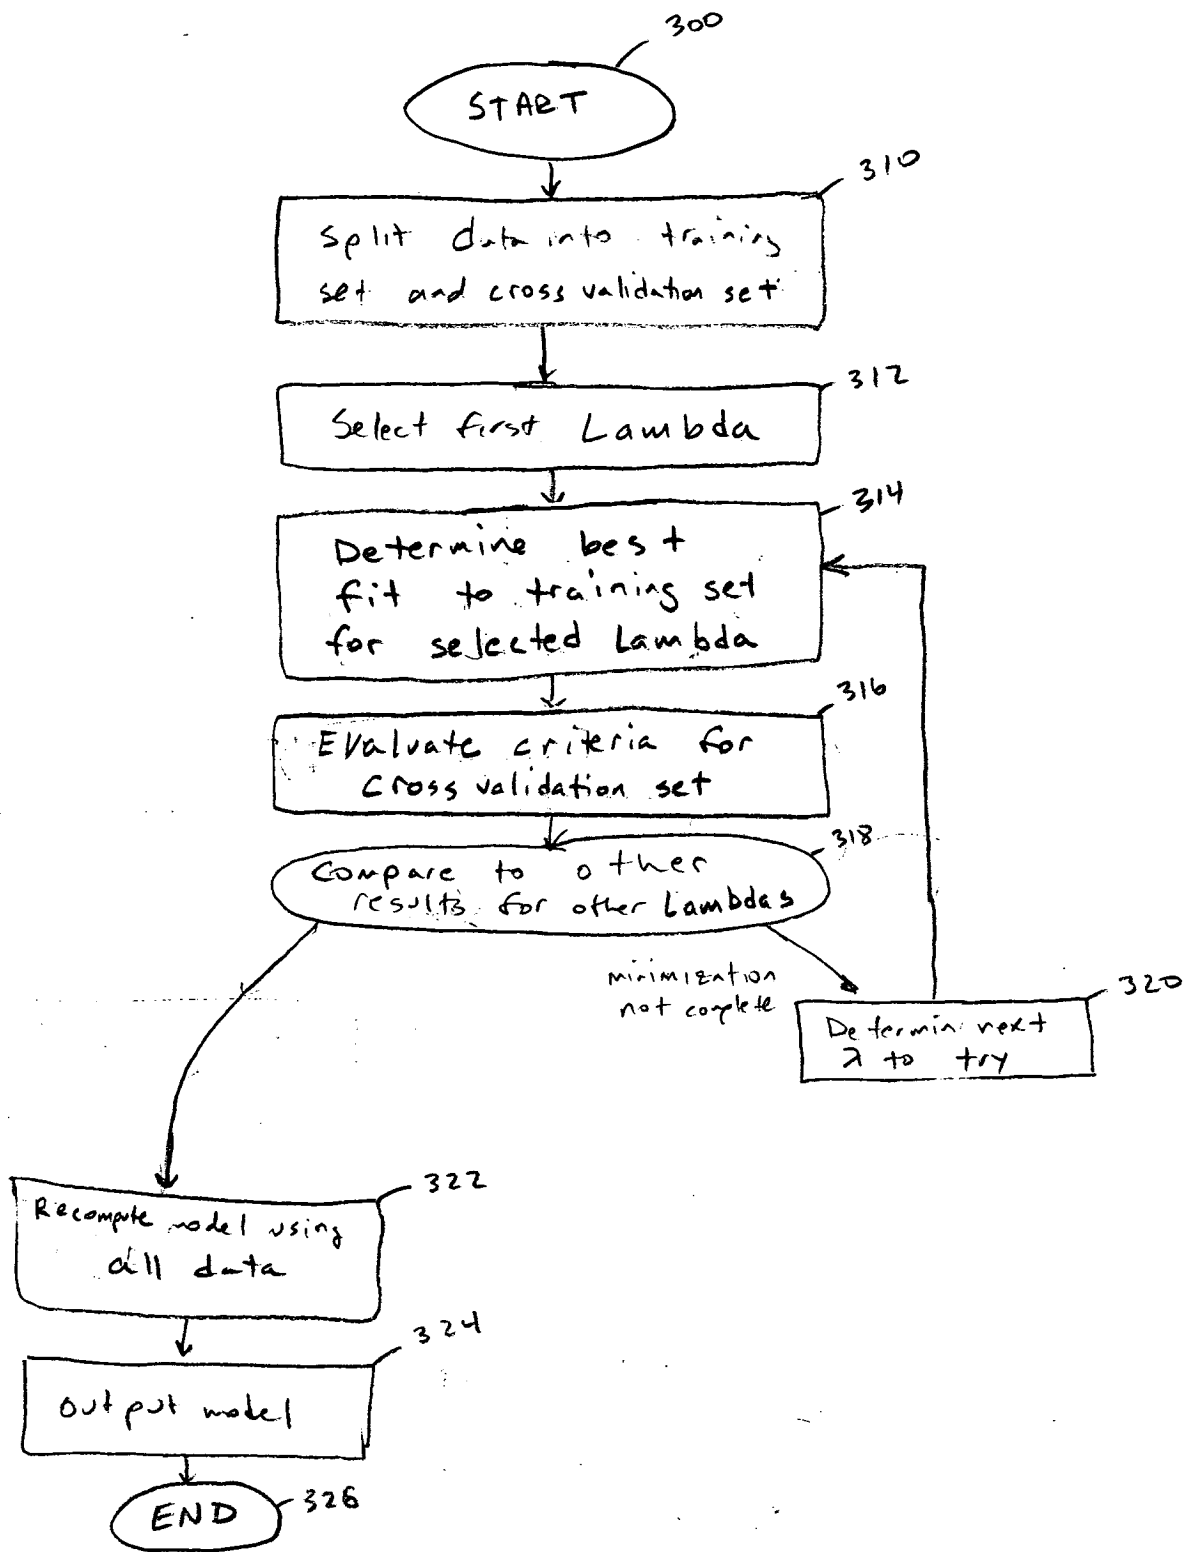 300
START
310
Split data into training
set and cross validation set
312
Select first Lambda
314
Determine best
fit to training set
for selected Lambda
316
Evaluate criteria for
cross validation set
318
Compare to other
results for other Lambdas
minimization
not complete
320
Determin next
λ to try
322
Recompute model using
all data
324
Output model
END
326